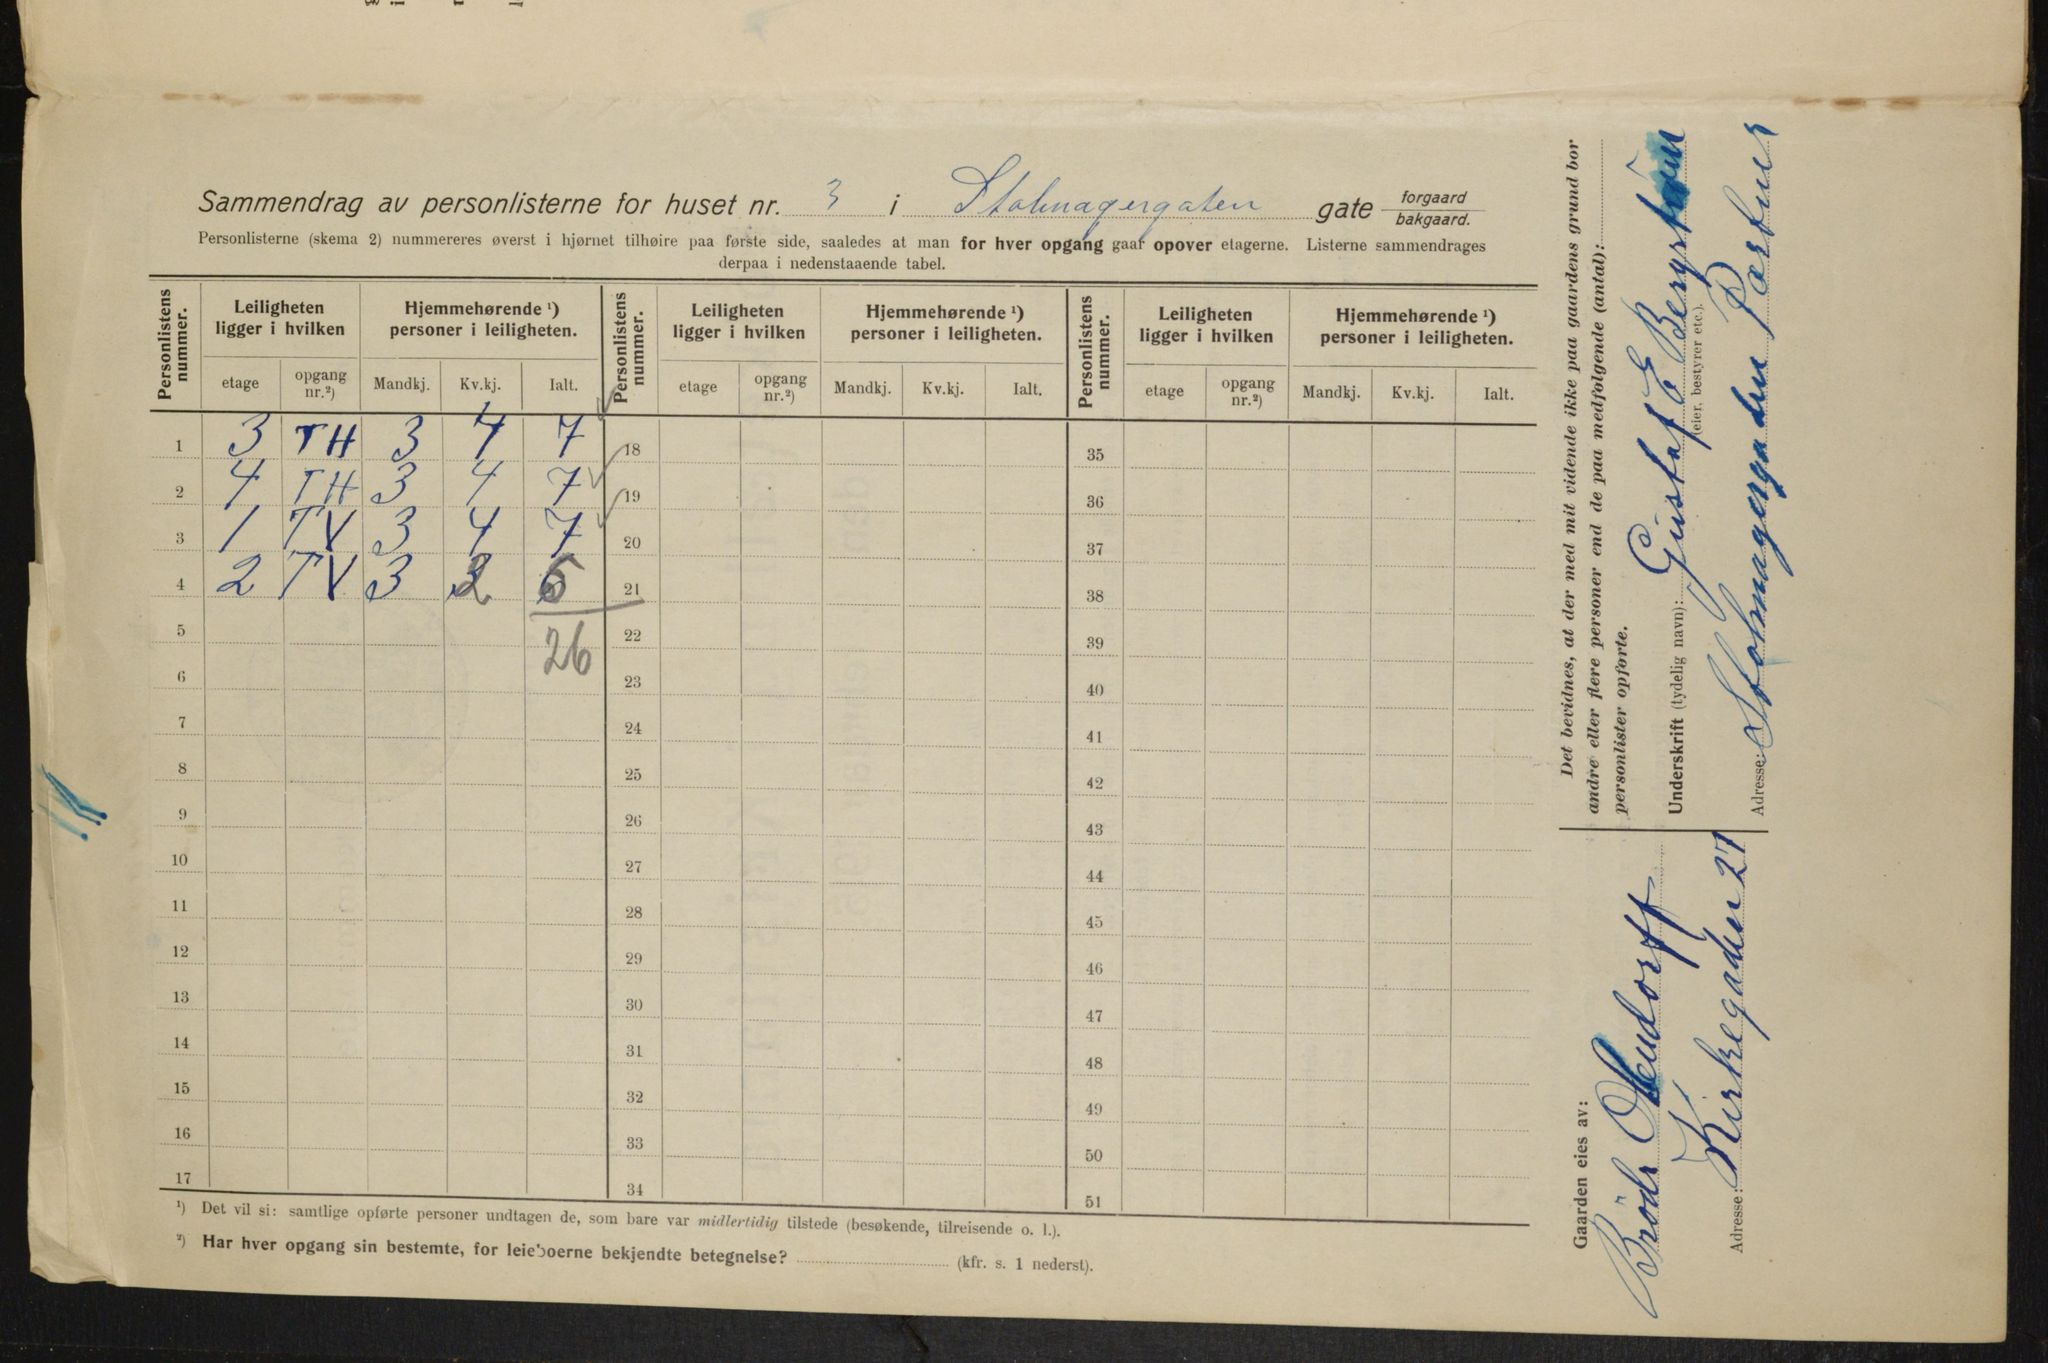 Sammendrag av personlisterne for huset nr. 3 i Stolmagergaten gate forgaard bakgaard.
Personlisterne (skema 2) nummereres øverst i hjørnet tilhøire paa første side, saaledes at man for hver opgang gaar opover etagerne. Listerne sammendrages
derpaa i nedenstaaende tabel.
Personlistens nummer. Leiligheten ligger i hvilken Hjemmehørende ¹) personer i leiligheten. Personlistens nummer. Leiligheten ligger i hvilken Hjemmehørende ¹) personer i leiligheten. Personlistens nummer. Leiligheten ligger i hvilken Hjemmehørende ¹) personer i leiligheten.
etage opgang nr.²) Mandkj. Kv.kj. Ialt. etage opgang nr.²) Mandkj. Kv.kj. Ialt. etage opgang nr.²) Mandkj. Kv.kj. Ialt.
1 3 TH 3 4 7 18 35
2 4 TH 3 4 7 19 36
3 1 TV 3 4 7 20 37
4 2 TV 3 2 5 21 38
5 26 22 39
6 23 40
7 24 41
8 25 42
9 26 43
10 27 44
11 28 45
12 29 46
13 30 47
14 31 48
15 32 49
16 33 50
17 34 51
¹) Det vil si: samtlige opførte personer undtagen de, som bare var midlertidig tilstede (besøkende, tilreisende o. l.).
²) Har hver opgang sin bestemte, for leieboerne bekjendte betegnelse? (kfr. s. 1 nederst).
Det bevidnes, at der med mit vidende ikke paa gaardens grund bor
andre eller flere personer end de paa medfølgende (antal):
personlister opførte.
Underskrift (tydelig navn): Gustaf E Bergström
(eier, bestyrer etc.).
Adresse: Stolmagergaden Portner
Gaarden eies av:
Brödr Olendorff
Adresse: Kirkegaden 27